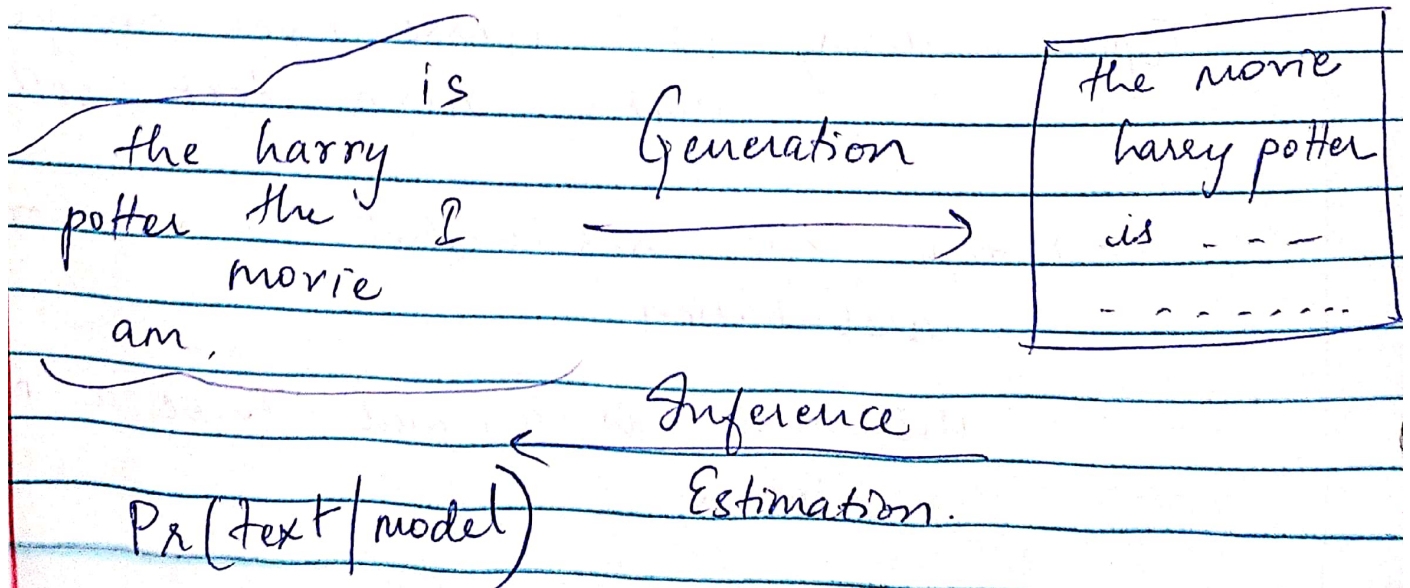 is
the harry
potter the I
movie
am,
Generation
the movie
harry potter
is - - -
- - - - - - - -
Inference
Estimation.
Pr(text|model)